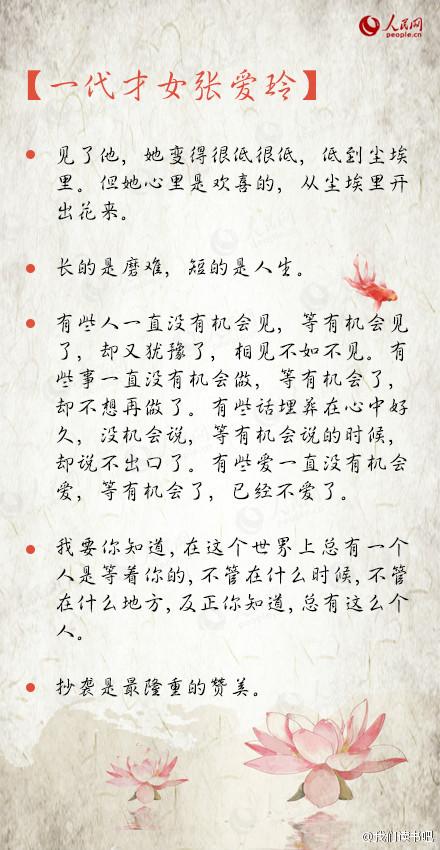 人民网
people.cn
【一代才女张爱玲】
见了他，她变得很低很低，低到尘埃
里。但她心里是欢喜的，从尘埃里开
出花来。
长的是磨难，短的是人生。
有些人一直没有机会见，等有机会见
了，却又犹豫了，相见不如不见。有
些事一直没有机会做，等有机会了，
却不想再做了。有些话埋葬在心中好
久，没机会说，等有机会说的时候，
却说不出口了。有些爱一直没有机会
爱，等有机会了，已经不爱了。
我要你知道，在这个世界上总有一个
人是等着你的，不管在什么时候，不管
在什么地方，反正你知道，总有这么个
人。
抄袭是最隆重的赞美。
@我们读书吧